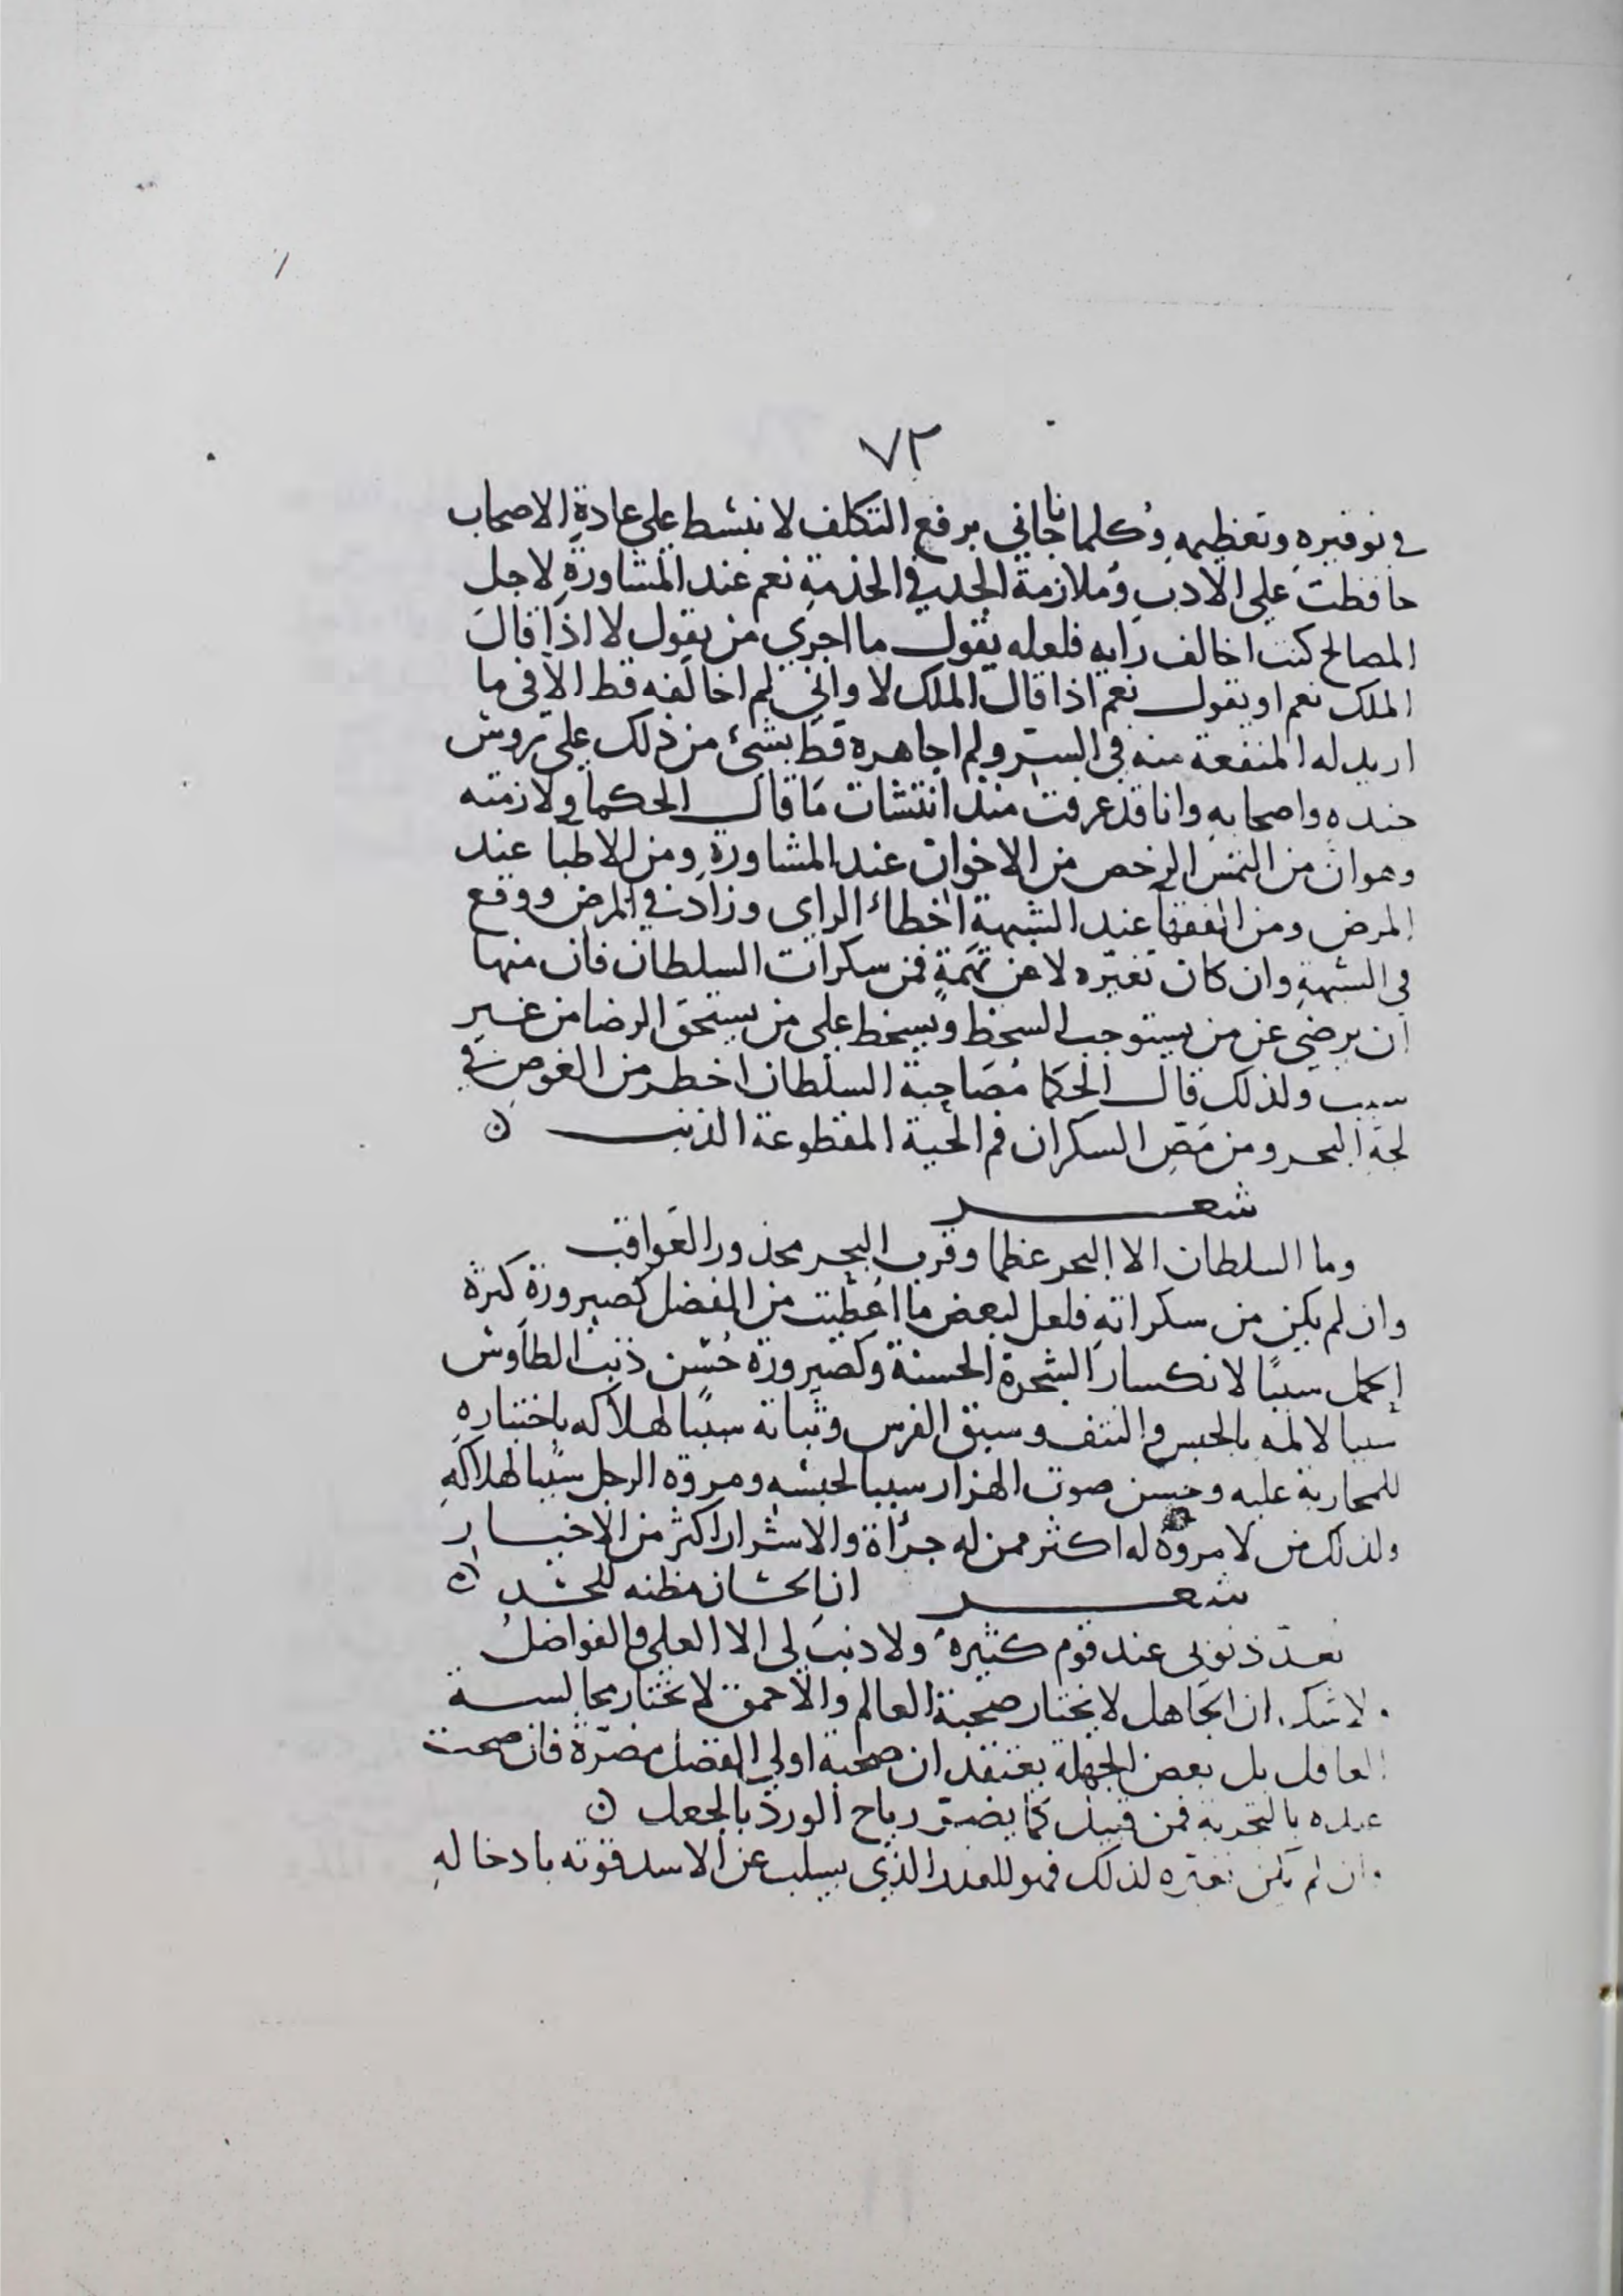 ٧٢
في توقيره وتعظيمه وكلما ناجاني برفع التكلف لا نبسط على عادة الاصحاب
حافظت على الادب وملازمة الجد في الخذمة نعم عند المشاورة لاجل
المصالح كنت اخالف رايه فلعله يقول ما اجرى من يقول لا اذا قال
الملك نعم او يقول نعم اذا قال الملك لا واني لم اخالفه قط الا في ما
اريد له المنفعة منه في السر ولم اجاهره قط بشئ من ذلك على روس
جنده واصحابه وانا قد عرفت منذ انتشات ما قال الحكما ولازمته
وهو ان من التمس الرخص من الاخوان عند المشاورة ومن الاطبا عند
المرض ومن الفقها عند الشبهة اخطاء الراى وزاد في المرض ووقع
في الشبهة وان كان تغيره لا عن تهمة فمن سكرات السلطان فان منها
ان يرضى عن من يستوجب السخط ويسخط على من يستحق الرضا من غير
سبب ولذلك قال الحكما مصاحبة السلطان اخطر من الغوص في
لجة البحر ومن مص السكران فم الحية المقطوعة الذنب ن
شعر
وما السلطان الا البحر عظما وقرب البحر محذور العواقب
وان لم يكن من سكراته فلعل لبعض ما اعطيت من الفضل كصيرورة كثرة
الحمل سببا لانكسار الشجرة الحسنة وكصيرورة حسن ذنب الطاوس
سببا لالمه بالحبس والنتف وسبق الفرس وثباته سببا لهلاكه باختياره
للمحاربة عليه وحسن صوت الهزار سببا لحبسه ومروة الرجل سببا لهلاكه
ولذلك من لا مروة له اكثر ممن له جرأة والاشرار اكثر من الاخيار
شعر ان الحسان مظنه للحسد ن
تعد ذنوبى عند قوم كثيرة ولا ذنب لى الا العلى والفواضل
ولا شك ان الجاهل لا يختار صحبة العالم والاحمق لا يختار مجالسة
العاقل بل بعض الجهلة يعتقد ان صحبة اولي الفضل مضرة فان صحت
عنده بالتجربة فمن قبيل كما يضر رياح الورد بالجعل ن
وان لم يكن تغيره لذلك فهو للقدر الذي يسلب عن الاسد قوته بادخاله